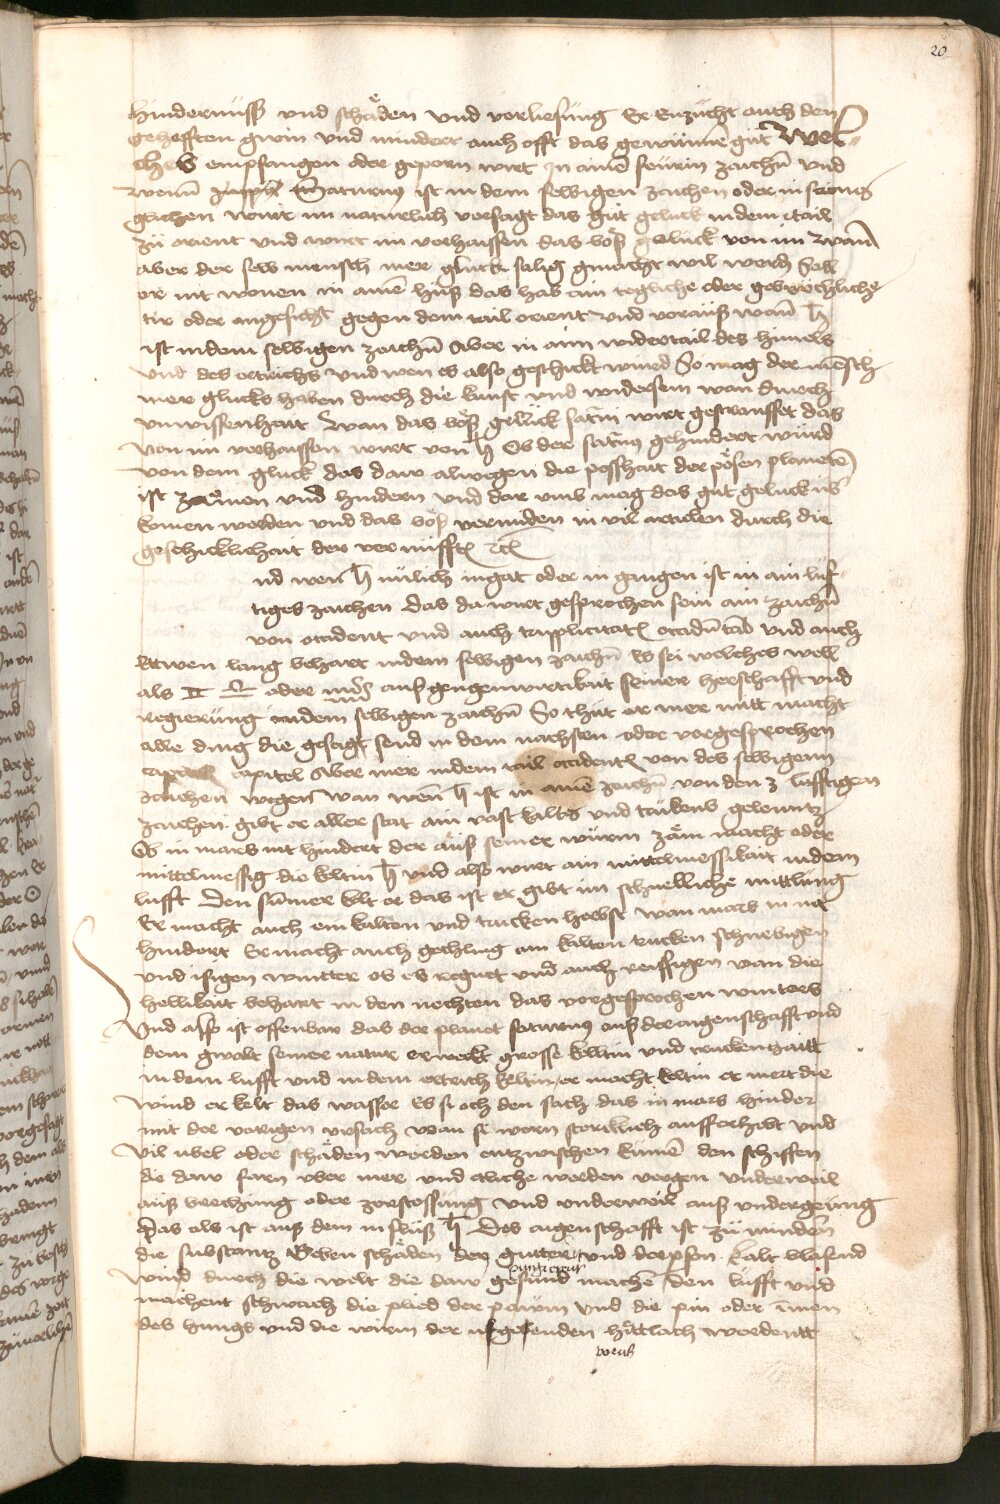 20
hindernüss vnd schäden vnd verliesung Er Enzücht auch den
gehofften gwin vnd mindert auch offt das gewunnē güt Wel-
ches empfangen oder geporn wirt In ainē feürin zaichñ vnd
Wenn Saturnus ist in dem selbigen zaichen oder in seines
gleichen wirt im naturlich versagt das güt gelück in dem tail
zü orient vnd wirt im verhaissen das böß gelück von im wañ
aber der selb mensch mer glück salig gmacht wil werdñ Soll
er nit wonen in ainē huß das hab ain tegliche oder gebrochliche
tür oder angesicht gegen dem tail orient vnd vorauß wañ ♄
ist in dem selbigen zaichñ Aber in aim widertail des himels
vnd des ertrichs vnd wen es also geschickt wurd So mag der mensch
mer glücks haben durch die kunst vnd widersein wan durch
vnwissenhait Wan das böß gelück saturni wirt gestraufft das
von im verhaissen wirt von ♄ Ob der saturnus gehindert wurd
von dem glück das dan alwegen die posshait der pösen planetē
ist zämen vnd hindern vnd dar vmb mag das güt gelück
komen werden vnd das böß vermiden in vil articlen durch die
geschicklichait der vernufft etc
nd wen ♄ nülich ingat oder in gangen ist in ain lüf-
tiges zaichen das da wirt gesprochen sein ain zaichñ
von occident vnd auch triplicitatis occidentalis vnd auch
Etwen lang behart in dem selbigen zaichñ Es sei welches well
als ♊ ♎ oder auß gegenwurtikait seiner herschafft vnd
regierung in dem selbigen zaichñ So thüt er mer mitt macht
alle ding die gesagt send in dem nächsten oder vorgesprochen
capitel Aber mer in dem tail occidentis von des selbigenn
zaichen wegen wan wen ♄ ist in ainē zaichñ von den 3 lüfftigen
zaichen gibt er aller stat ain vast kaltes vnd trückens
Ob in mars nit hindert der auß seiner würm zäm macht oder
mittelmessig die keltin ♄ vnd also wirt ain mittelmessikait in dem
lufft Den sumer kelt er das ist er gibt im schnelliche mittlung
Er macht auch ein kalten vnd trucken herbst wan mars in nit
hindert Er macht auch gechling ain kalten trucken schnebigen
vnd isigen wintter ob es regnet vnd auch reiffigen wan die
hellikait behart in den nechten das vorgesprochen winters
Vnd also ist offenbar das der planet saturnus auß der aigenschafft vnd
dem gwalt seiner natur erweckt grosse keltin vnd truckenhaitt
in dem lufft vnd in dem ertrich keltin er macht keltin er mert die
wind er kelt das wasser Es si och den sach das in mars hinder
mit der vorigen vrsach wan si worn sterklich aufferhebt vnd
vil übel oder schäden werden entzwischen kumē den schiffen
die daw farn vber mer vnd etliche werden vergen vnderweil
auß brechung oder zerstossung vnd vnderweil auß vndergeüng
Das als ist auß dem influß ♄ Des aigenschafft ist zü minden
die substantz Geben schäden den gütter vnd der pson kalt blasend
wind durch die welt die daw gesund machē den lufft vnd
machent schwach die plied der paüm vnd die pin oder imen
des hungs vnd die würm der hättlach werdentt